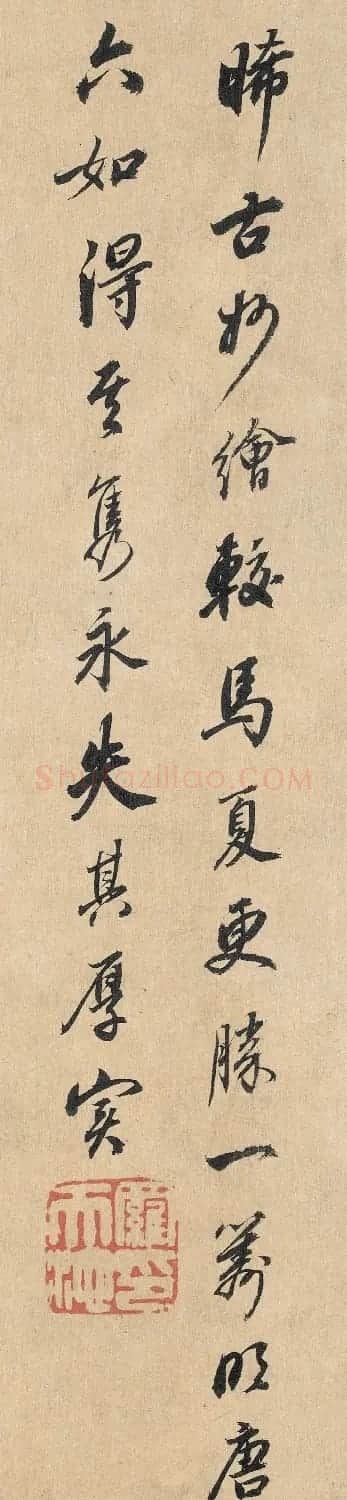 晞古妙繪較馬夏更勝一籌明唐
六如得其雋永失其厚實
Shufaziliao.COM